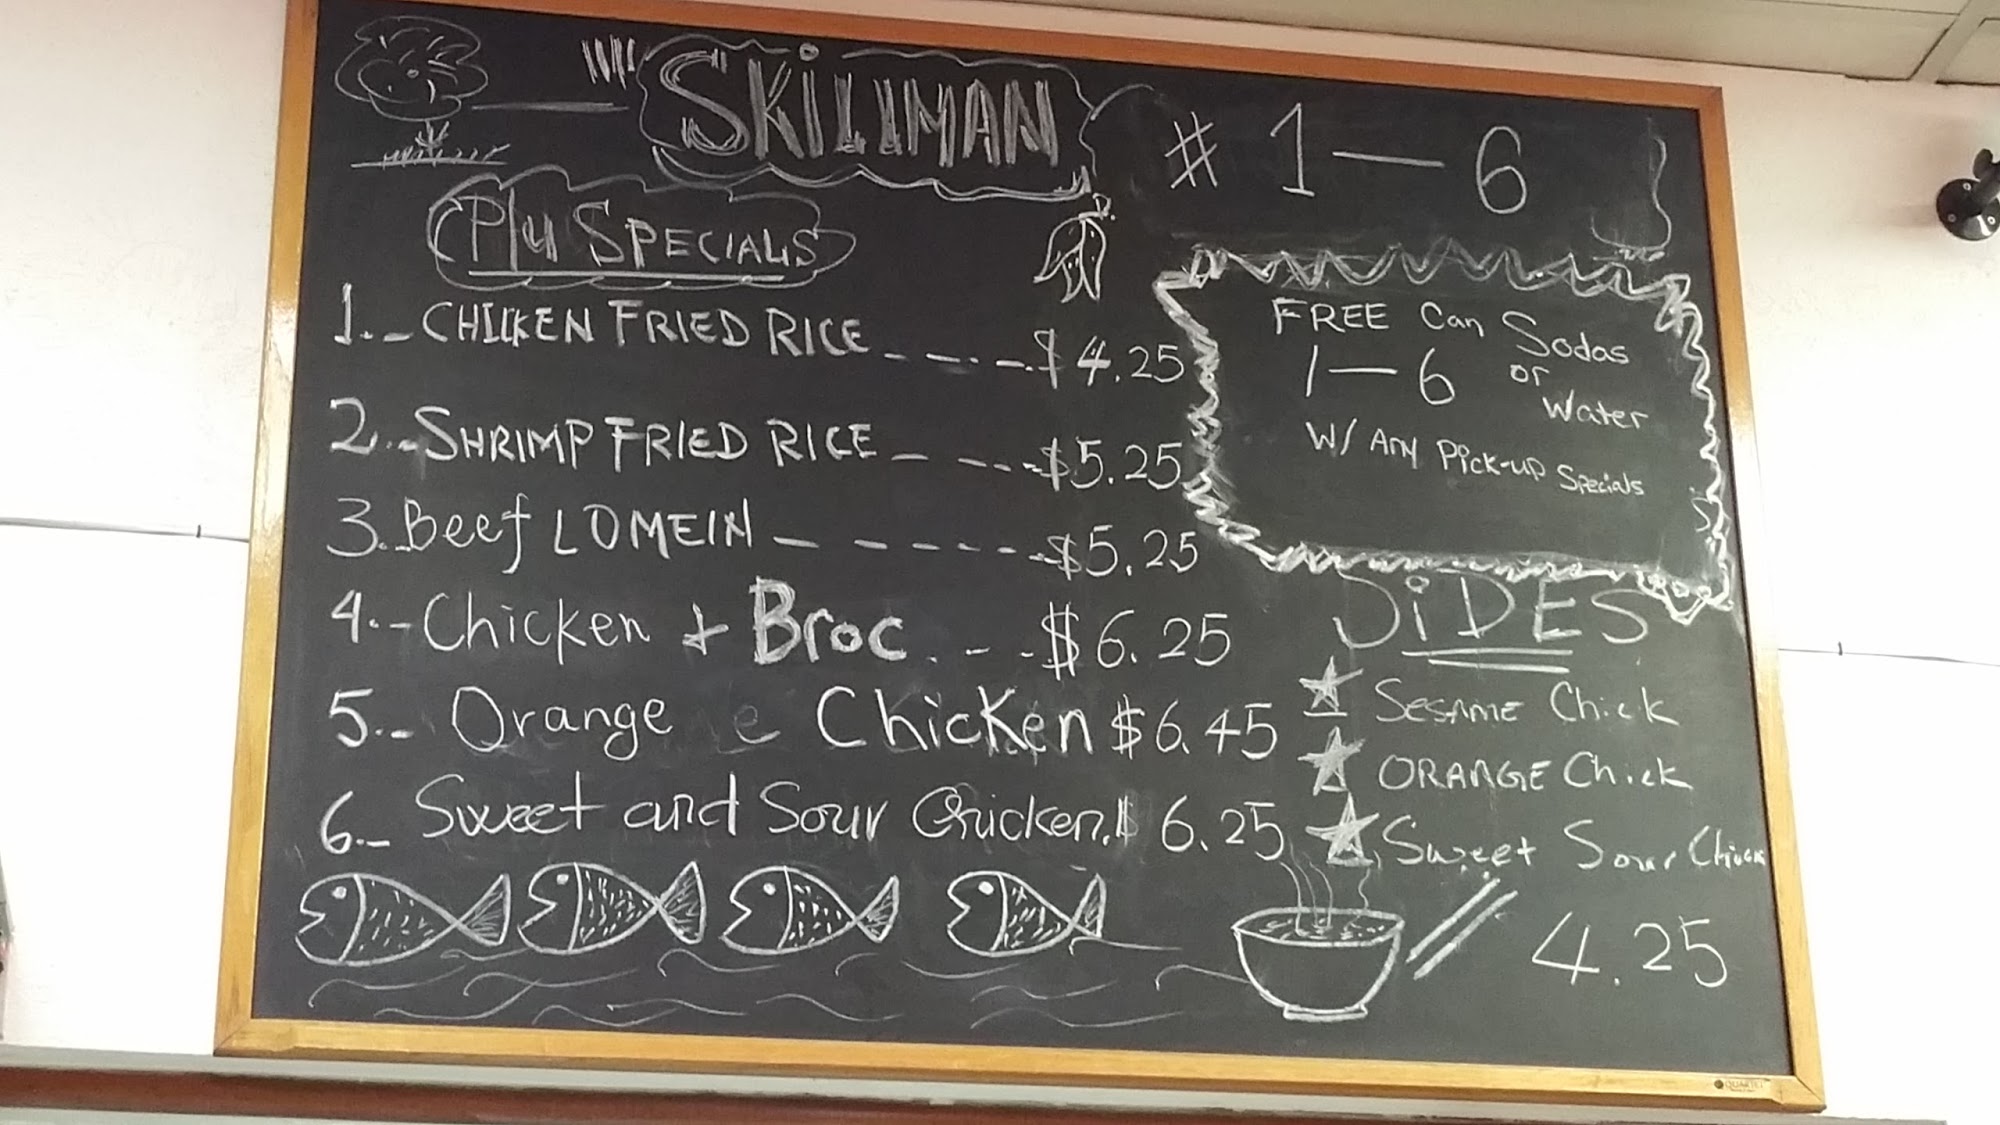 SKiLLMAN # 1 — 6
P/u SPECIALS
1.- CHICKEN FRIED RICE ----$4.25
2.- SHRIMP FRIED RICE - ---$5.25
3.- Beef LOMEIN - - ----$5.25
4.- Chicken + Broc . - -$6.25
5.- Orange e Chicken $6.45
6.- Sweet and Sour Chicken.$ 6.25
FREE Can Sodas
1—6 or
Water
W/ Any Pick-up Specials
SiDES
SESAME Chick
ORANGE Chick
Sweet Sour Chick
4.25
QUARTET